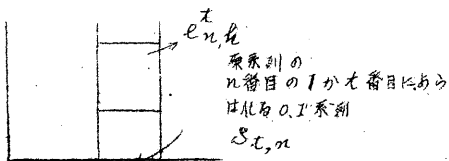 e^t_{n,k}
原系列の
n番目の1がt番目にあら
はれる0,1系列
S_{t,n}